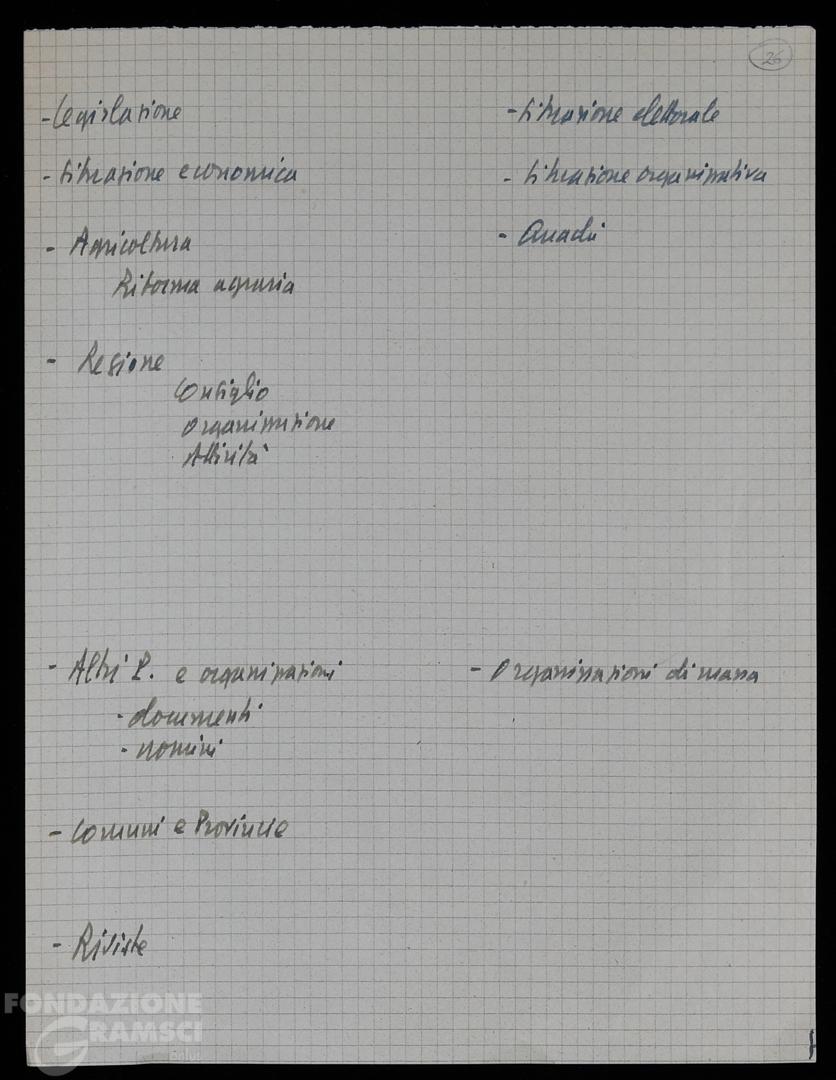 26
- Legislazione
- Situazione economica
- Agricoltura
Riforma agraria
- Regione
Consiglio
Organizzazione
Attività
- Altri P. e organizzazioni
- documenti
- uomini
- Comuni e Provincie
- Riviste
- Situazione elettorale
- Situazione organizzativa
- Quadri
- Organizzazioni di massa
FONDAZIONE
GRAMSCI